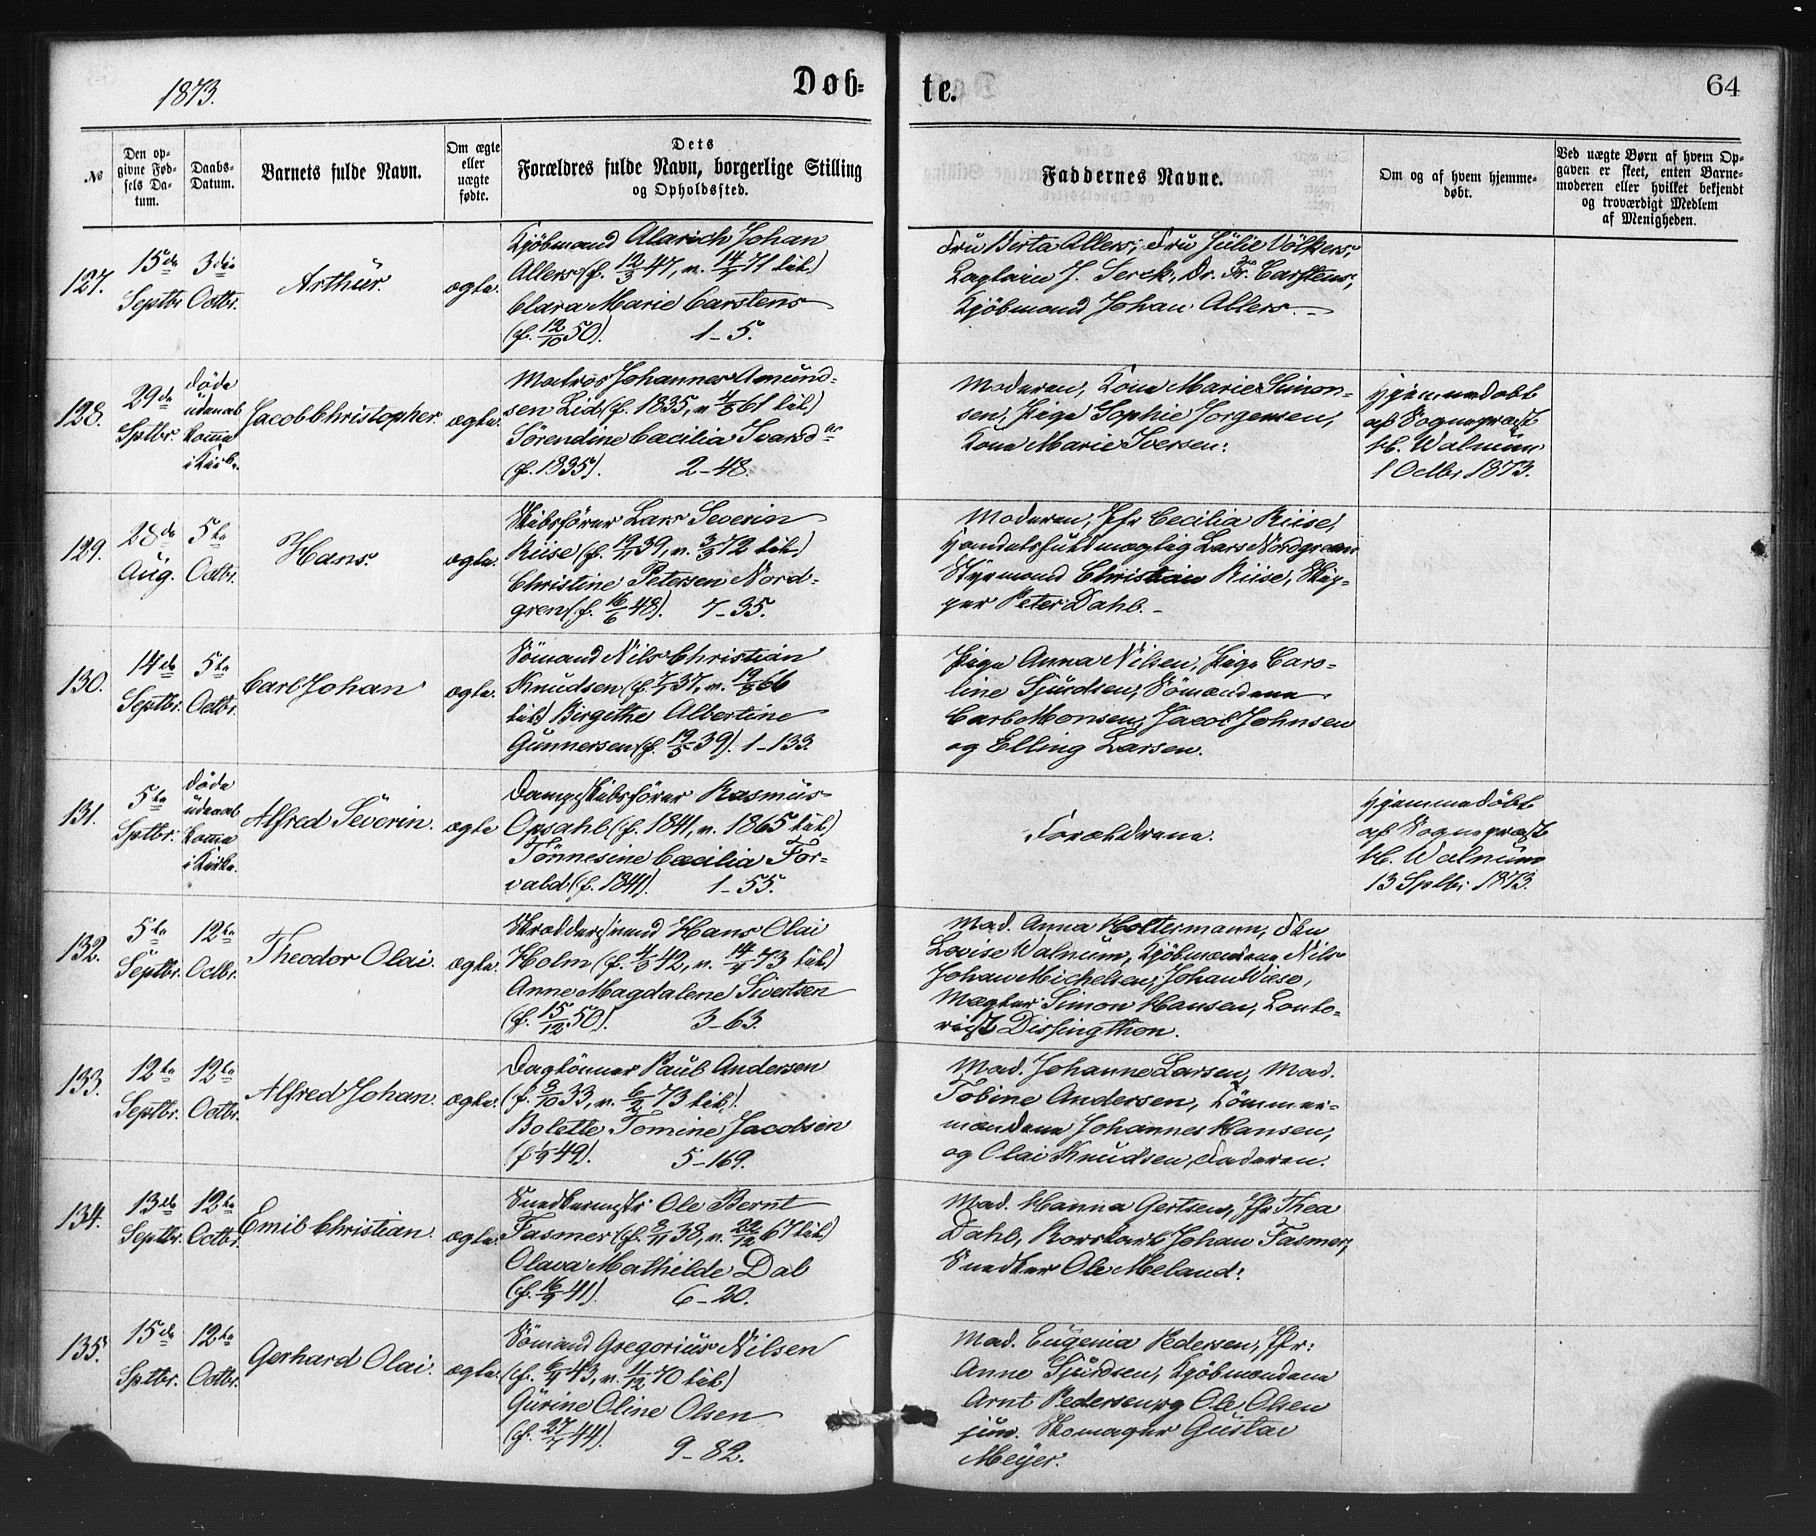 1873.
Døb-
te.
64
No
Den op-
givne Fød-
sels Da-
tum.
Daabs-
Datum.
Barnets fulde Navn.
Om ægte
eller
uægte
fødte.
Dets
Forældres fulde Navn, borgerlige Stilling
og Opholdssted.
Faddernes Navne.
Om og af hvem hjemme-
døbt.
Ved uægte Børn af hvem Op-
gaven er skeet, enten Barne-
moderen eller hvilket bekjendt
og troværdigt Medlem
af Menigheden.
127.
15de
Septbr.
3die
Octbr.
Arthur.
ægte.
Kjöbmand Alarich Johan
Allers (f. 12/3 47, v. 71 til)
Clara Marie Carstens
(f. 12/10 50). 1-5.
Fru Berta Allers, Fru Julie Völkers,
Captain J. Serck, Dr. Fr. Carstens,
Kjöbmand Johan Allers.
128.
29de
Sptbr.
döde
udenat
komme
i Kirke.
Jacob Christopher.
ægte.
Matros Johannes Amund-
sen Lid (f. 1835, v. 61 til)
Sörendine Cæcilia Ivarsd
(f. 1835). 2-48.
Moderen, Kone Marie Simon-
sen, Pige Sophie Jorgensen,
Kone Marie Iversen.
Hjemmedobt
af Sognepræst
Walnum
1 Octbr 1873.
129.
28de
Aug.
5te
Octbr.
Hans.
ægte.
Skibsförer Lars Severin
Riise (f. 39, v. 3/3 72 til)
Christine Petersen Nord-
gren (f. 16/6 48). 7-35.
Moderen, Jfr Cecilia Riise,
Handelsfuldmægtig Lars Nordgreen
Styrmand Christian Riise, Skip-
per Peter Dahl.
130.
14de
Septbr.
5te
Octbr.
Carl Johan
ægte.
Sömand Nils Christian
Knudsen (f. 37, v. 66
til) Birgithe Albertine
Gunnersen (f. 39). 1-133.
Pige Anna Nilsen, Pige Caro-
line Sjurdsen, Sömændene
Carl Monsen, Jacob Johnsen
og Elling Larsen.
131.
5te
Sptbr.
döde
udenat
komme
i Kirke.
Alfred Severin.
ægte
Dampskibsförer Rasmus
Opsahl (f. 1841, v. 1865 til)
Tönnesine Cæcilia Tor-
vald (f. 1841). 1-55.
Forældrene.
Hjemmedöbt
af Sognepræst
Walnum
13 Sptbr 1873.
132.
5te
Septbr.
12te
Octbr.
Theodor Olai.
ægte.
Skræddersvend Hans Olai
Holm (f. 42, v. 14/4 73 til)
Anne Magdalene Sivertsen
(f. 15/12 50). 3-63.
Mad. Anna Holtermann, Frk
Lovise Walnum, Kjöbmændene Nils
Johan Michelsen, Johan Wiese,
Mægler Simon Hansen, Conto-
rist Dissingthon.
133.
12te
Septbr.
12te
Octbr.
Alfred Johan.
ægte.
Daglönner Paul Andersen
(f. 33, v. 6/2 73 til)
Bolette Tomine Jacobsen
(f. 49). 5-169.
Mad. Johanne Larsen, Mad.
Tobine Andersen, Tömmer-
mændene Johannes Hansen,
og Olai Knudsen, Faderen.
134.
13de
Septbr.
12te
Octbr.
Emil Christian.
ægte.
Snedkermestr Ole Bernt
Fasmer (f. 38, v. 22/12 67 til)
Olava Mathilde Dal
(f. 16/9 41). 6-20.
Mad. Hanna Gertsen, Jfr Thea
Dahl, Korskarl Johan Fasmer,
Snedker Ole Meland.
135.
15de
Sptbr.
12te
Octbr.
Gerhard Olai.
ægte.
Sömand Gregorius Nilsen
(f. 43, v. 70 til)
Gurine Oline Olsen
(f. 44). 9-82.
Mad. Eugenia Pedersen, Jfr:
Anne Sjurdsen, Kjöbmændene
Arnt Pedersen og Ole Olsen
jun. Skomager Gustav
Meyer.